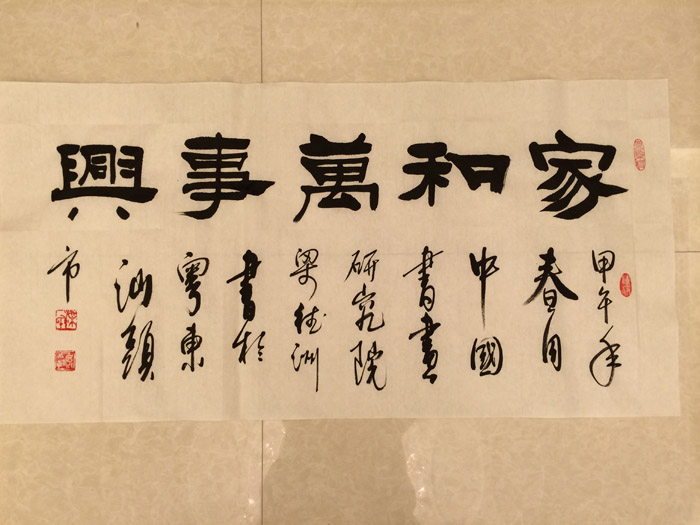 家和萬事興
甲午年
春月
中國
書畫
研究院
梁德洲
書於
粤東
汕頭
市